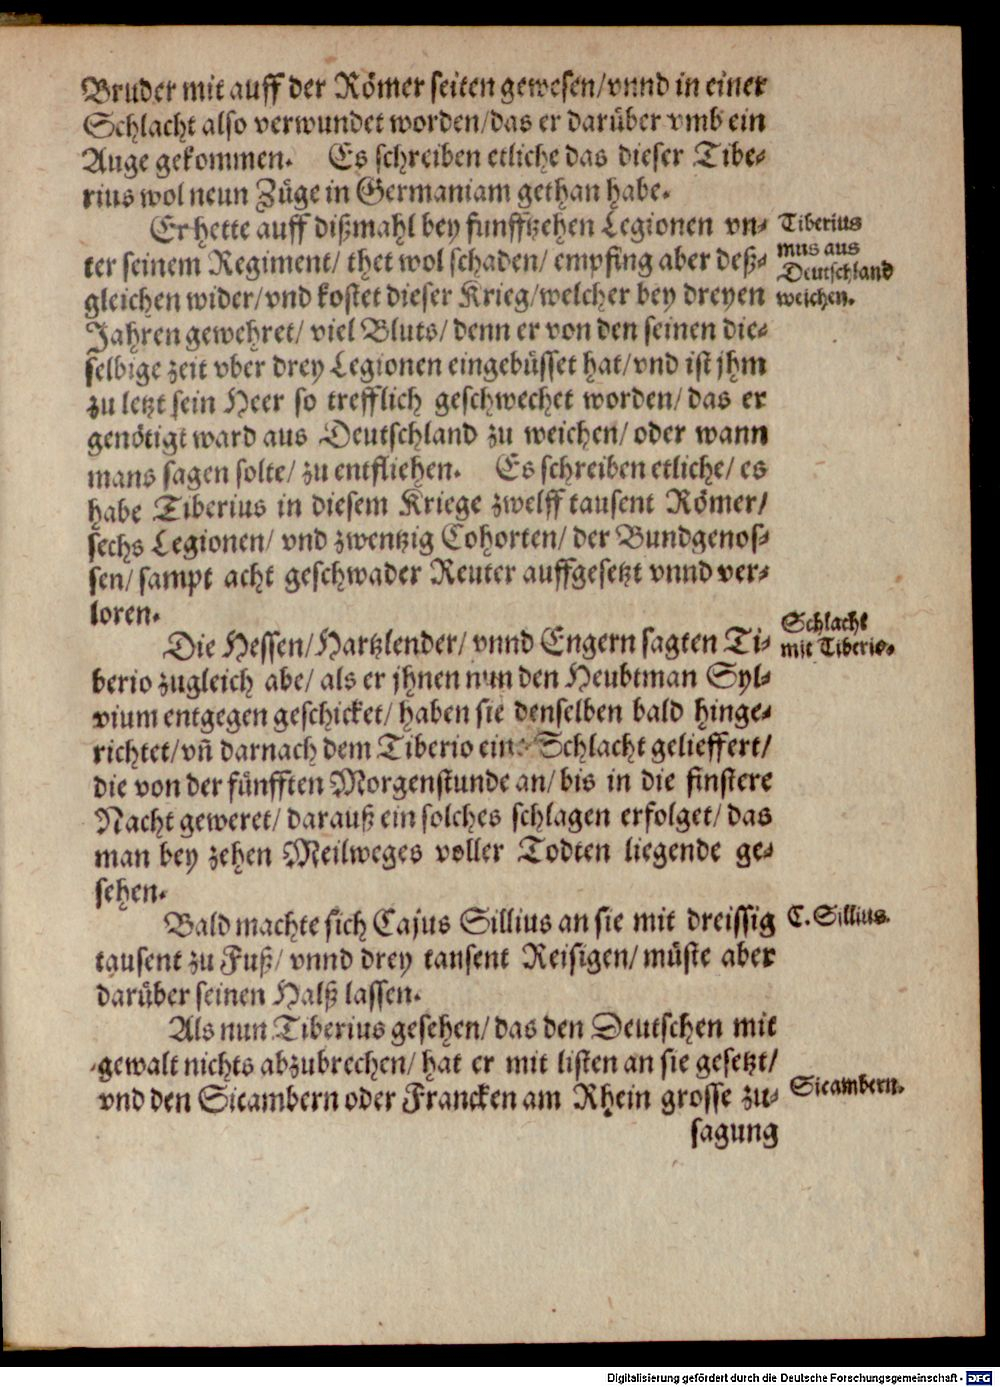 Bruder mit auff der Römer seiten gewesen/vnnd in einer
Schlacht also verwundet worden/das er darüber vmb ein
Auge gekommen. Es schreiben etliche das dieser Tibe-
rius wol neun Züge in Germaniam gethan habe.
Er hette auff dißmahl bey funfftzehen Legionen vn-
ter seinem Regiment/ thet wol schaden/ empfing aber deß-
gleichen wider/vnd kostet dieser Krieg/welcher bey dreyen
Jahren gewehret/ viel Bluts/ denn er von den seinen die-
selbige zeit vber drey Legionen eingebüsset hat/vnd ist jhm
zu letzt sein Heer so trefflich geschwechet worden/ das er
genötigt ward aus Deutschland zu weichen/ oder wann
mans sagen solte/ zu entfliehen. Es schreiben etliche/ es
habe Tiberius in diesem Kriege zwelff tausent Römer/
sechs Legionen/ vnd zwentzig Cohorten/ der Bundgenos-
sen/ sampt acht geschwader Reuter auffgesetzt vnnd ver-
loren.
Tiberius
mus aus
Deutschland
weichen.
Die Hessen/Hartzlender/ vnnd Engern sagten Ti-
berio zugleich abe/ als er jhnen nun den Heubtman Syl-
vium entgegen geschicket/ haben sie denselben bald hinge-
richtet/vñ darnach dem Tiberio eine Schlacht gelieffert/
die von der fünfften Morgenstunde an/ bis in die finstere
Nacht geweret/ darauß ein solches schlagen erfolget/ das
man bey zehen Meilweges voller Todten liegende ge-
sehen.
Schlacht
mit Tiberio.
Bald machte sich Cajus Sillius an sie mit dreissig
tausent zu Fuß/ vnnd drey tausent Reisigen/ müste aber
darüber seinen Halß lassen.
C. Sillius.
Als nun Tiberius gesehen/ das den Deutschen mit
gewalt nichts abzubrechen/ hat er mit listen an sie gesetzt/
vnd den Sicambern oder Francken am Rhein grosse zu-
Sicambern.
sagung
Digitalisierung gefördert durch die Deutsche Forschungsgemeinschaft - DFG